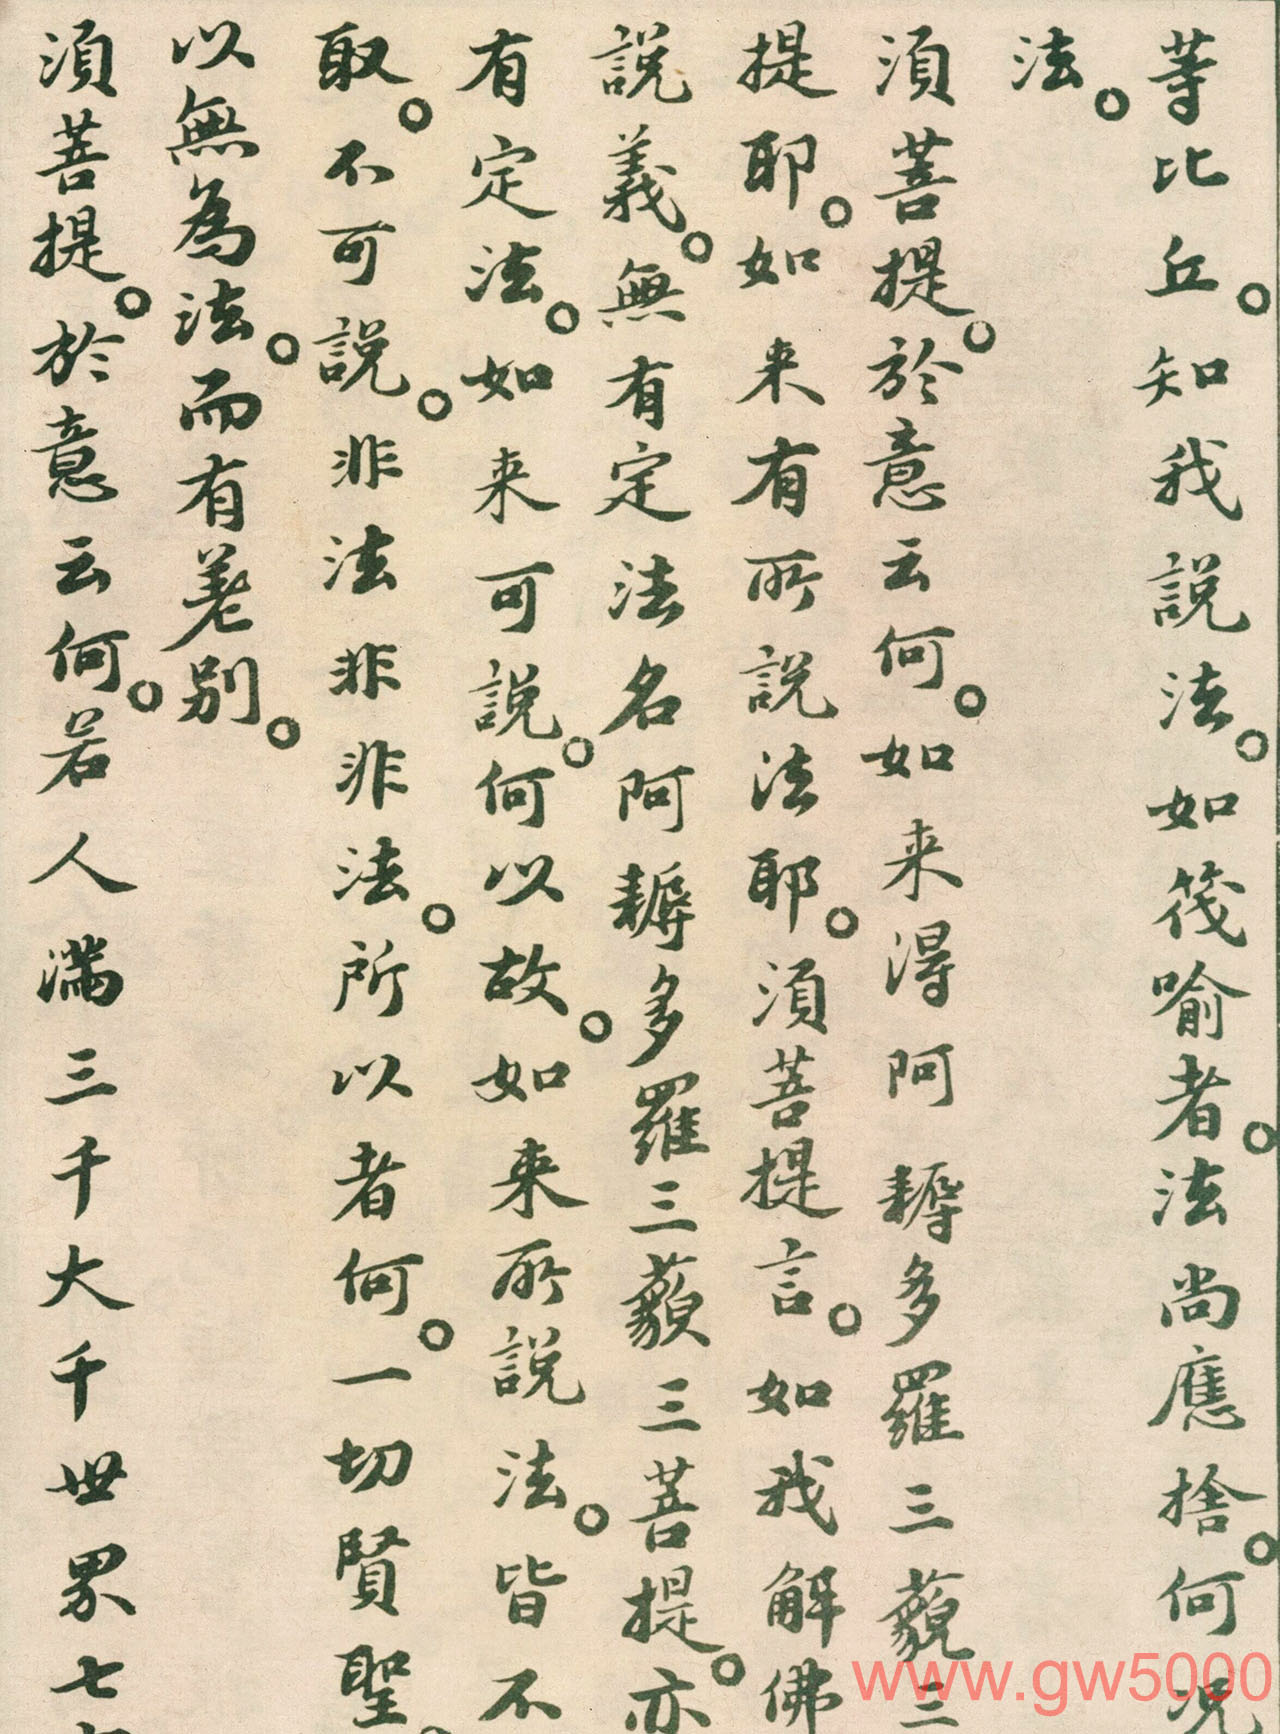 等比丘。知我說法。如筏喻者。法尚應捨。何況
法。
須菩提。於意云何。如来得阿耨多羅三藐三
提耶。如来有所說法耶。須菩提言。如我解佛
說義。無有定法名阿耨多羅三藐三菩提。亦
有定法。如来可說。何以故。如来所說法。皆不
取。不可說。非法非非法。所以者何。一切賢聖
以無為法。而有差別。
須菩提。於意云何。若人滿三千大千世界七
www.gw5000